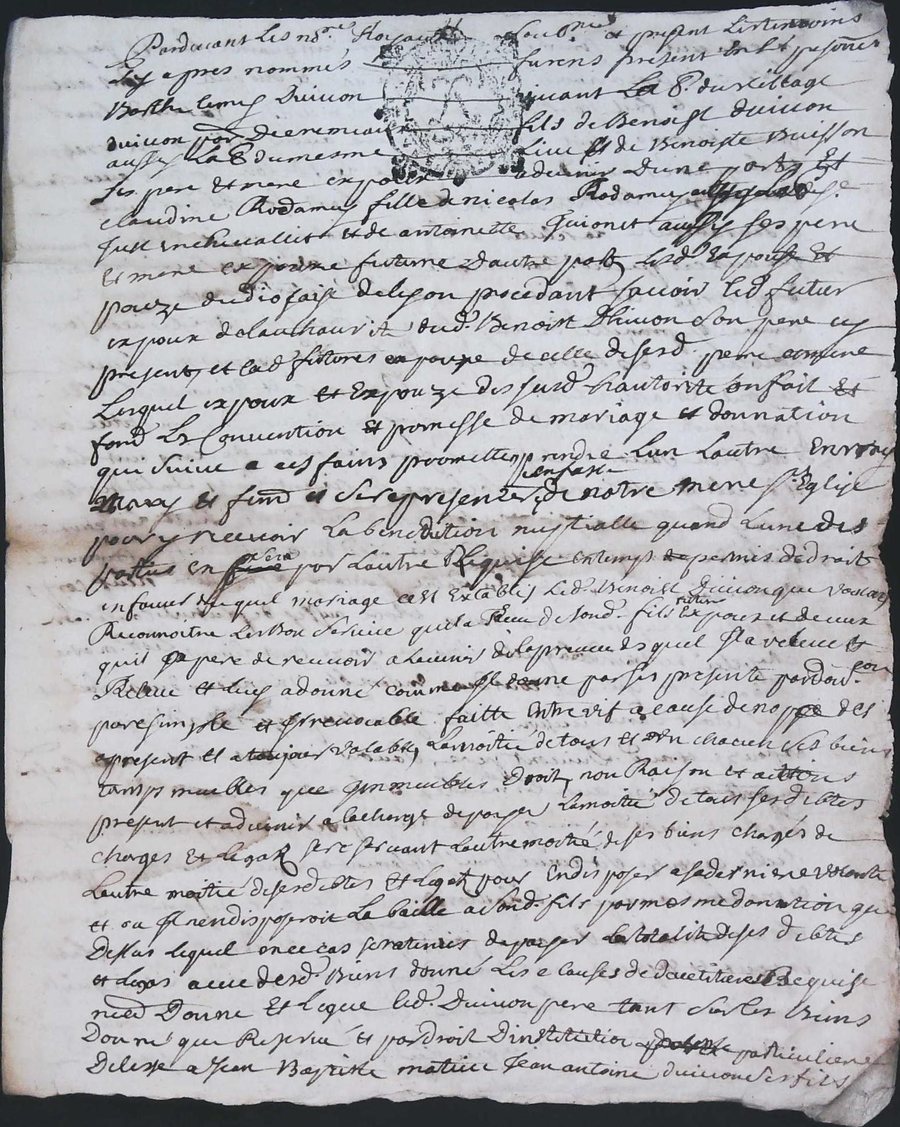 Pardevant Les no.res Royaux soub.nes et present Les temoins
Ley apres nommés furens present en L personnes
Barthelemy Duivon vivant La P. du village
duivon par de eremieux fils de Benoist duivon
aussy La P. du mesme Lieu et de Benoiste Buisson
ses pere et mere expoux advenir Dune part Et
claudine Rodamey fille de nicolas Rodamey
Just en chevallet et de antoinette Guionet aussy ses pere
et mere expouze future dautre part Lesd. Expouse et
pouze dudiofaise deleson procedant scavoir led. futur
expoux de lauthaurité dud. Benoist Duivon son pere icy
present et lad. futures expouze de celle desesd. pere et mere
Lesquel expoux et Expouze des susd. hautorité on fait et
fond Les Convention et promesse de mariage et donnation
qui suive a ces fains promettes prendre Lun Lautre En vray
mary et femd et se represenzer en fasse de notre mere S.te Eglise
pour y recevoir La benediction nuptialle quand Lune des
parties en sera par Lautre Requise en temps de permis de droit
en faveur de quel mariage cest Etablis Led. Benoist duivon que voulant
Reconnoitre Les Bon Service quil a Receu de sond. fils futur Expoux et de ceux
quil Espere de recevoir a Lavenir de la preuve desquel Il la releve et
Releve et Luy a donné comme Il donne par ses presente pardon
pure simple et Irrevocable faitte entre vif a cause de noppe des
apresent et a toujour valable, La moitié de tous et un chacun Ses biens
tamps meubles que Immeubles Droit, nom Raison et actions
present et advenir a la charge de payer La moitié de tous ses debtes
charges et Legat, se reservant Lautre moitié de ses biens chargés de
Lautre moitié de ses debtes et Legat pour En disposer a sa derniere volonté
et ou Il nendisposeroit La baille a sond. fils par mesme donnation que
Dessus lequel en ce cas sera tenus de payer la totalité de ses debtes
et Legas avec desd. Biens donné Les clauses de Requise
nied Donne et Legue led. Duivon pere tant sur les Biens
Donné que Reservé et par droit Dinstitution particuliere
Delesse a Jean Baptiste matieu Jean antoine duivon ses fils